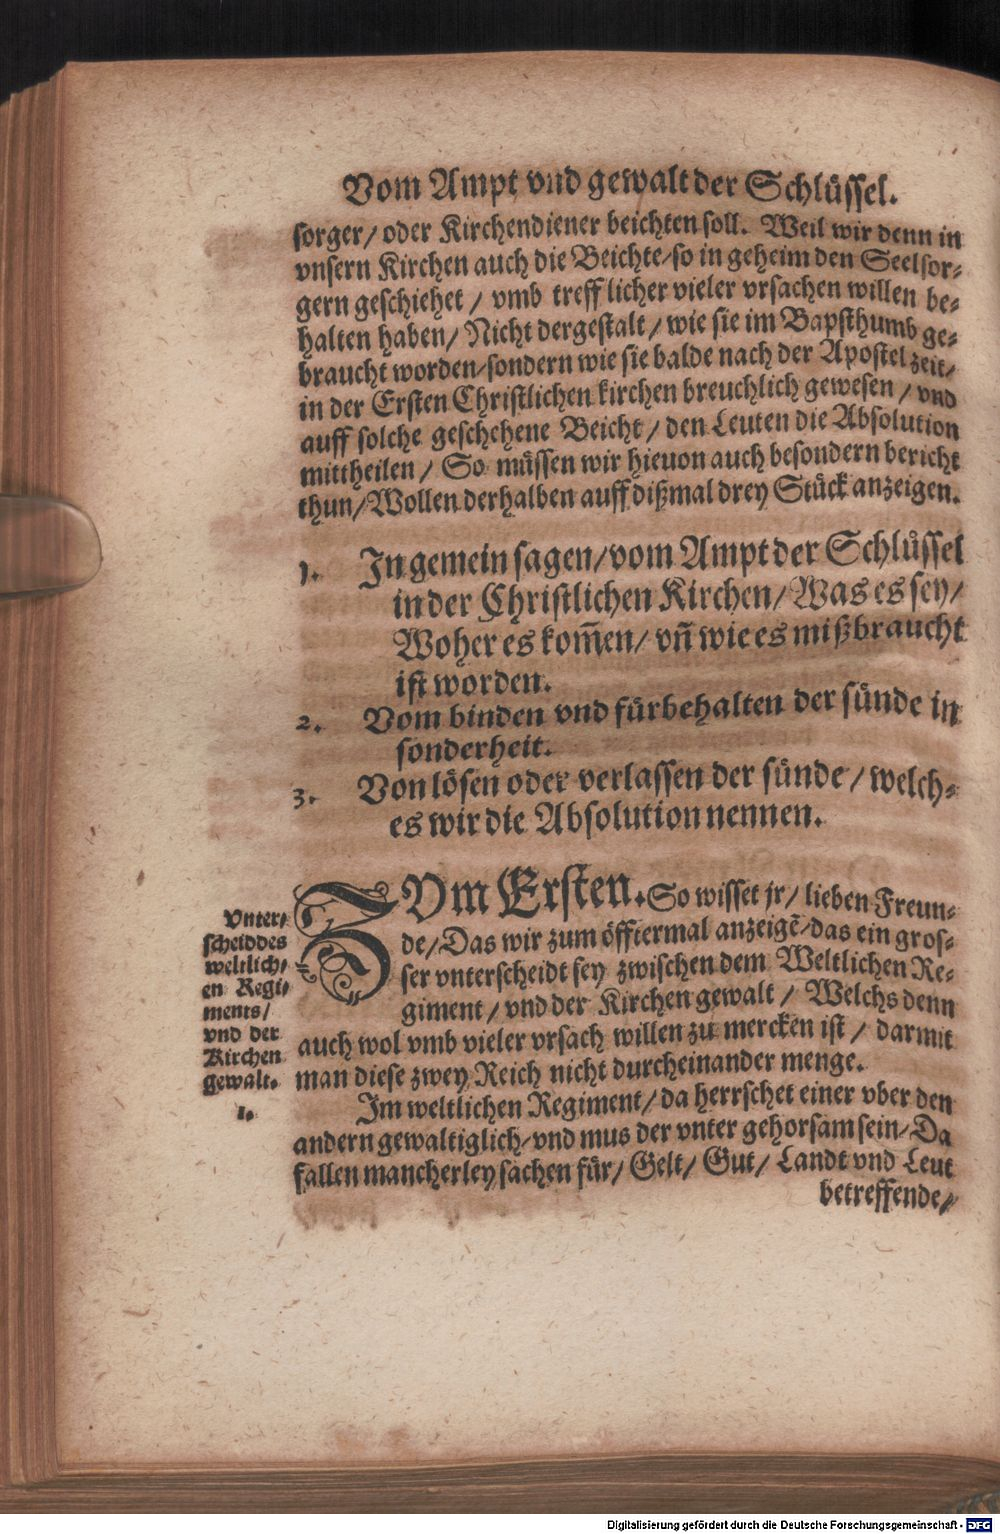 Vom Ampt vnd gewalt der Schlüssel.
sorger/ oder Kirchendiener beichten soll. Weil wir denn in
vnsern Kirchen auch die Beichte/ so in geheim den Seelsor⸗
gern geschiehet / vmb trefflicher vieler vrsachen willen be⸗
halten haben/ Nicht dergestalt / wie sie im Bapsthumb ge⸗
braucht worden/ sondern wie sie balde nach der Apostel zeit/
in der Ersten Christlichen kirchen breuchlich gewesen / vnd
auff solche geschehene Beicht / den Leuten die Absolution
mittheilen / So müssen wir hieuon auch besondern bericht
thun/ Wollen derhalben auff dißmal drey Stück anzeigen.
1. In gemein sagen/ vom Ampt der Schlüssel
in der Christlichen Kirchen/ Was es sey/
Woher es kom̄en/ vn̄ wie es mißbraucht
ist worden.
2. Vom binden vnd fürbehalten der sünde in
sonderheit.
3. Von lösen oder verlassen der sünde / welch⸗
es wir die Absolution nennen.
ZVm Ersten. So wisset jr/ lieben Freun⸗
de/ Das wir zum öfftermal anzeigē/ das ein gros⸗
ser vnterscheidt sey zwischen dem Weltlichen Re⸗
giment / vnd der Kirchen gewalt / Welchs denn
auch wol vmb vieler vrsach willen zu mercken ist / darmit
man diese zwey Reich nicht durcheinander menge.
Vnter⸗
scheid des
weltlich⸗
en Regi⸗
ments/
vnd der
Kirchen
gewalt.
1.
Im weltlichen Regiment/ da herrschet einer vber den
andern gewaltiglich/ vnd mus der vnter gehorsam sein/ Da
fallen mancherley sachen für/ Gelt/ Gut/ Landt vnd Leut
betreffende/
Digitalisierung gefördert durch die Deutsche Forschungsgemeinschaft - DFG